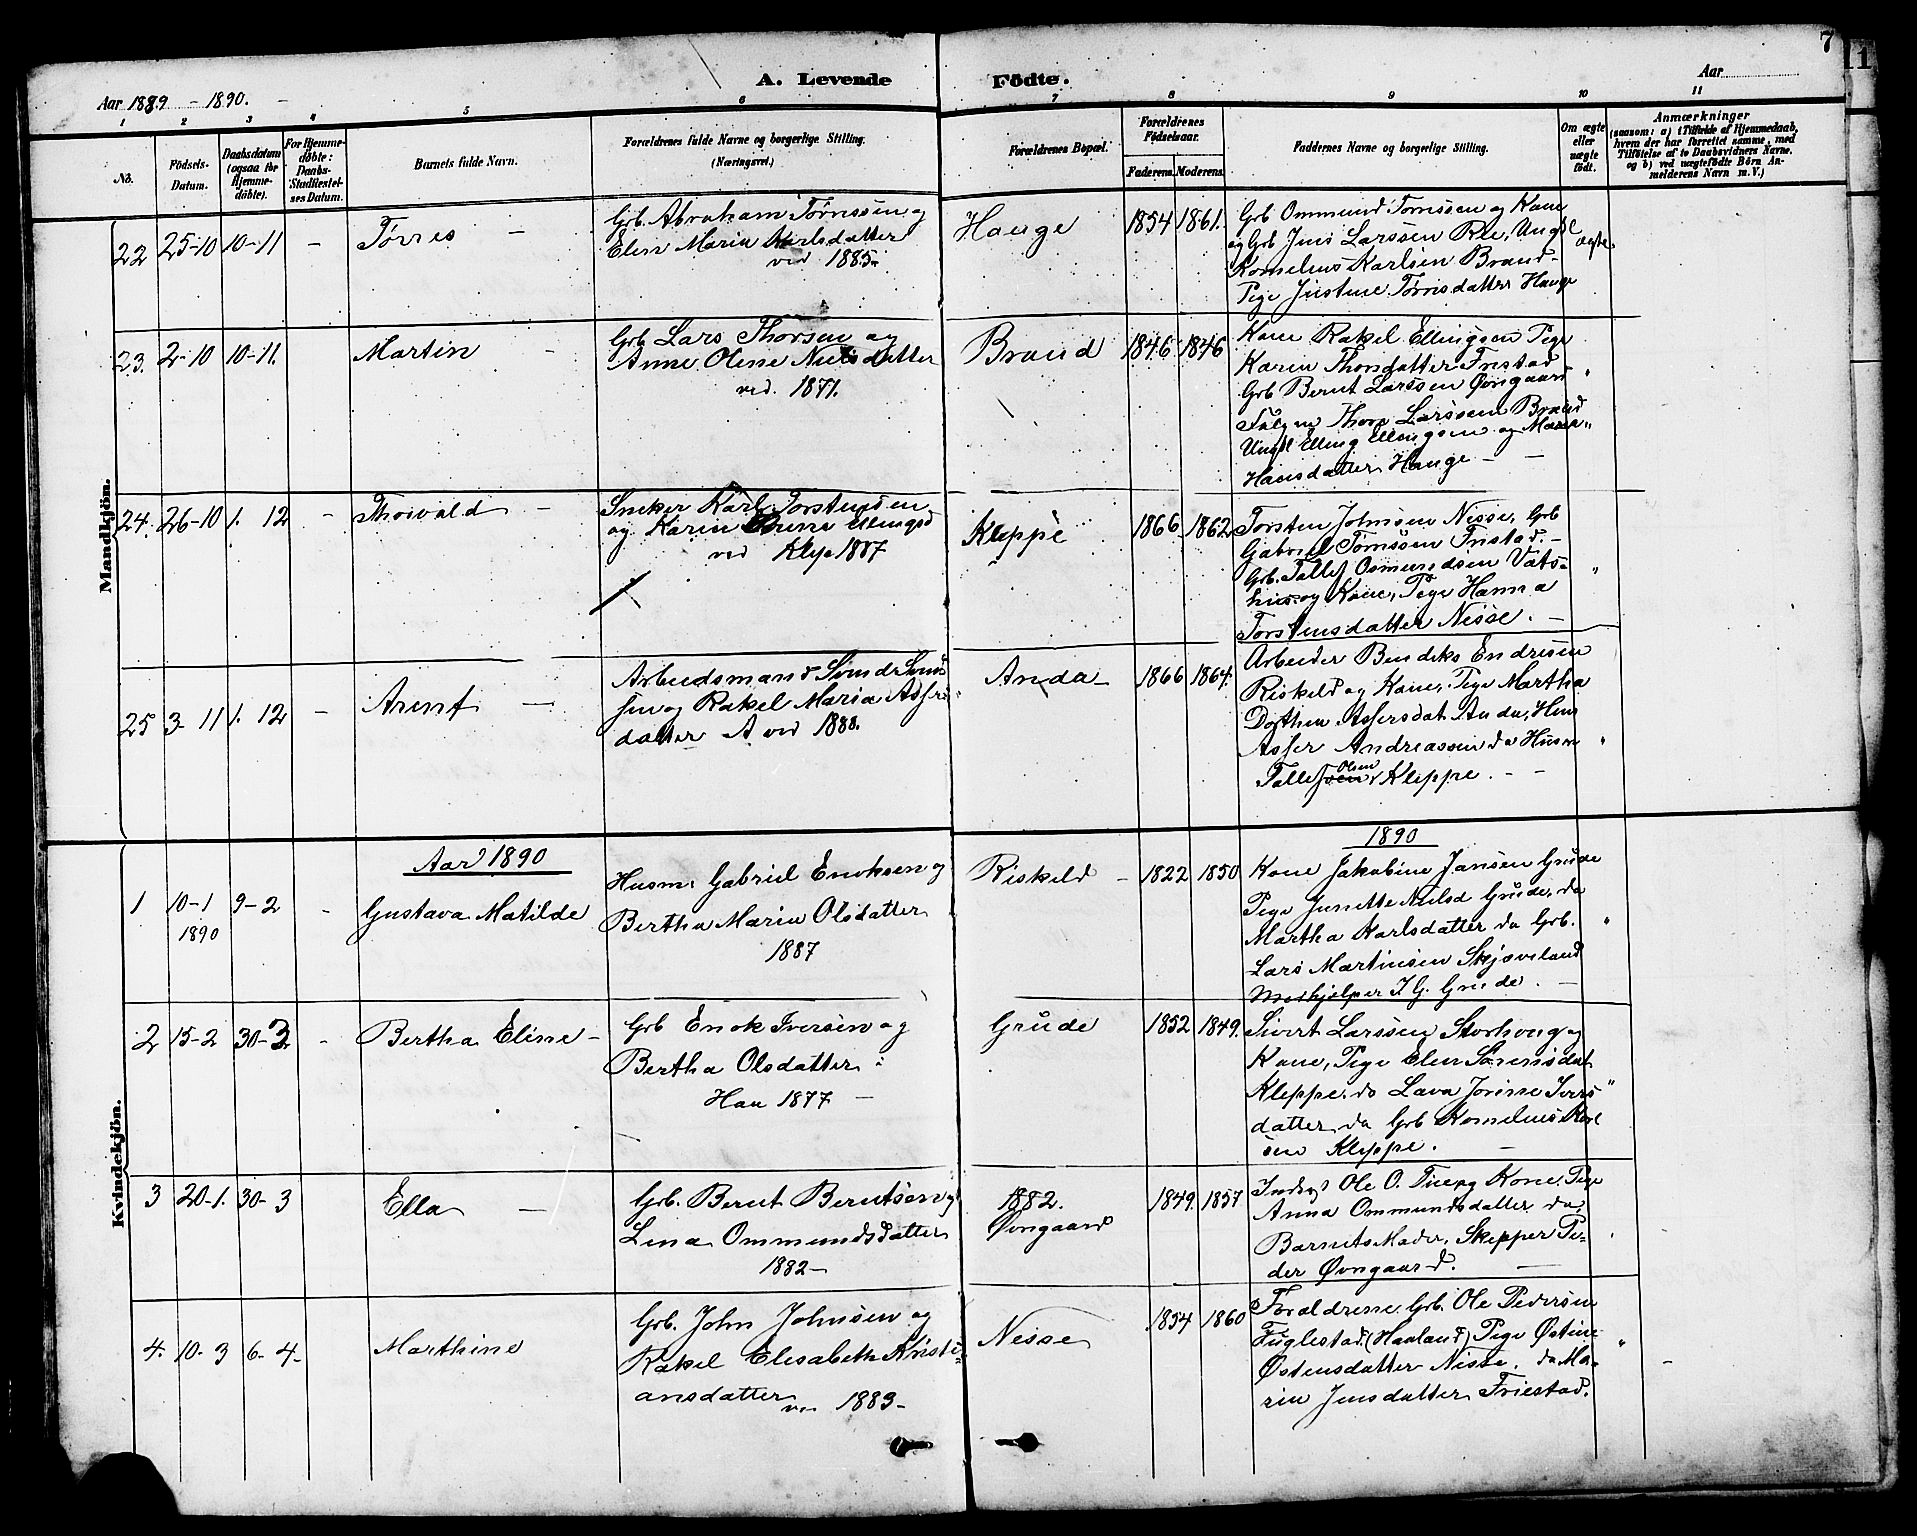 7
11
A. Levende Födte.
Aar 1889 - 1890.
Aar
1 2 3 4 5 6 7 8 9 10 11
No.
Födsels-Datum.
Daabsdatum (ogsaa for Hjemmedøbte).
For Hjemmedøbte: Daabs-Stadfæstelses Datum.
Barnets fulde Navn.
Forældrenes fulde Navne og borgerlige Stilling. (Næringsvei.)
Forældrenes Bopæl.
Forældrenes Födselsaar.
Faderens. Moderens.
Faddernes Navne og borgerlige Stilling.
Om ægte eller uægte födt.
Anmærkninger
(saasom: a) i Tilfælde af Hjemmedaab, hvem der har forrettet samme, med Tilföielse af to Daabsvidners Navne. og b) ved uægtefödte Börn Anmelderens Navn m.V.)
Mandkjön.
22 25-10 10-11 - Tørres -
Grb. Abraham Tørressen og
Elen Maria Karlsdatter
vid 1885
Hauge 1854 1861.
Grb Ommund Tørressen og Kone
og Grb Jens Larssen Rie, Ungk
Kornelius Karlsen Braud-
Pige Justine Tørresdatter Hauge
ægte
23. 2-10 10-11. Martin -
Grb Lars Thorsen og
Anne Oline Nielsdatter
vid. 1871.
Braud 1846 1846
Kone Rakel Ellingsen Pige
Karen Thorsdatter Friestad
Grb Bernt Larssen Øvngaard
Thore Larssen Braud
Ungk Elling Ellingsen og Maren
Hansdatter Hauge - - "
24. 26-10 1. 12 - Thorvald -
Sneker Karl Torstensen
og Karen Ellingsd
vid Klep 1887
Kleppe 1866 1862
Torsten Johnsen Nesse, Grb
Gabriel Tørressen Friestad. -
Grb. Tallef Osmundsen Vats-
hus og Kone, Pige Hanna
Torstensdatter Nesse. - "
25 3-11 1. 12 - Arent -
Arbeidsmand Svend Svend-
sen og Rakel Maria Assers-
datter A vid 1888.
Anda - 1866 1864.
Arbeider Bendiks Endresen
Riskeld og Kone, Pige Martha
Dorthea Assersdat Anda, Husm
Asser Andreassen da Husm
Tallef Olsen Kleppe. - - "
Kvindekjön.
Aar 1890
1890
1 10-1 1890 9-2 - Gustava Matilde
Husm. Gabriel Enoksen og
Bertha Maria Olsdatter
1887
Riskeld - 1822 1850
Kone Jakobine Jansen Grude
Pige Junette Nielsd Grude, da
Martha Karlsdatter da Grb.
Lars Martinsen Skjæveland
J. G. Grude. - "
2 15-2 30-3 - Bertha Eline -
Grb Enok Iversen og
Bertha Olsdatter
Haa 1877 -
Grude 1852 1849.
Sivert Larssen Storhoug og
Kone, Pige Elen Sørensdat
Kleppe, do Lava Jorine Ivers-
datter da Grb Kornelius Karl
sen Kleppe. - "
3 20-1. 30-3 Ella -
Grb. Bernt Berntsen og
Lina Ommundsdatter
1882 -
1882.
Øvngaard 1849. 1857
Inds Ole O. Tu og Kone, Pige
Anna Ommundsdatter da,
Barnets Moder, Skipper Pe-
der Øvngaard. -
4. 10-3 6-4- Marthine
Grb. John Johnsen og
Rakel Elisabeth Kristi-
ansdatter 1883-
Nesse 1854 1860
Forældrene, Grb. Ole Pedersen
Fuglestad (Haaland) Pige Østine
Østensdatter Nesse. da Ma-
rin Jensdatter Friestad. "
-